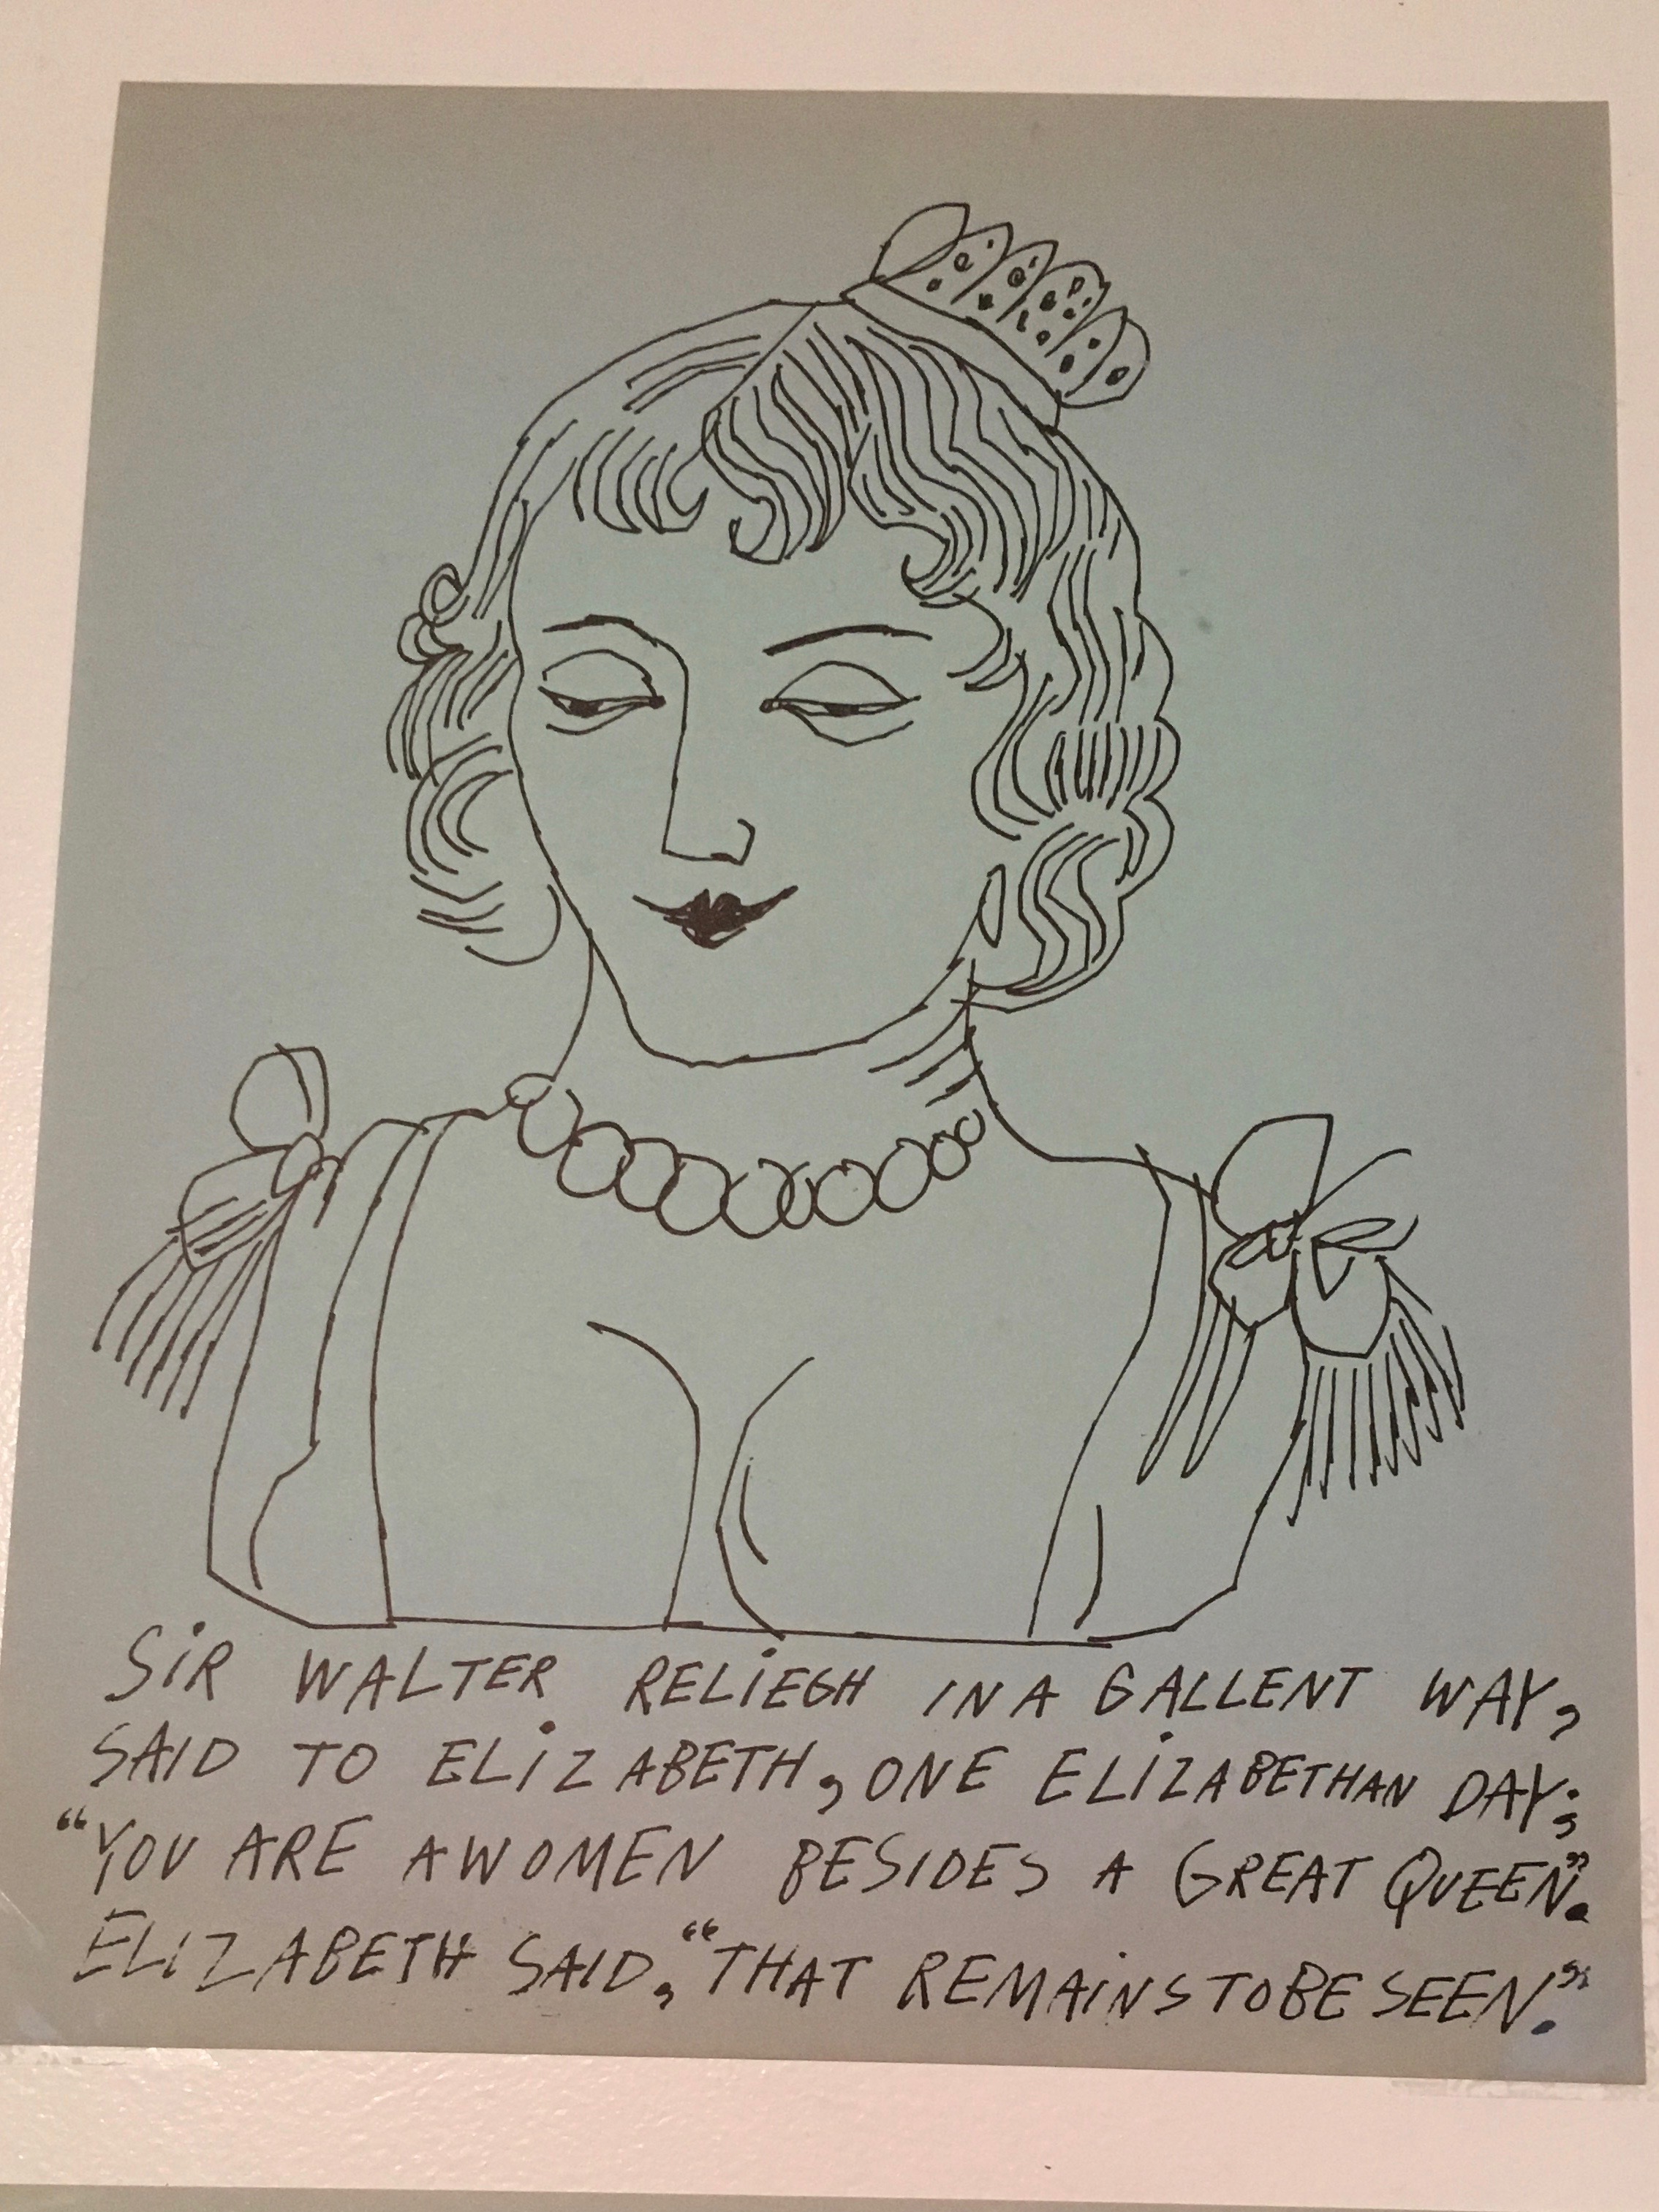 SiR WALTER RELiEGH IN A GALLENT WAY,
SAID TO ELiZABETH, ONE ELiZABETHAN DAY;
“YOU ARE A WOMEN BESIDES A GREAT QUEEN”.
ELIZABETH SAID, “THAT REMAiNS TO BE SEEN”.